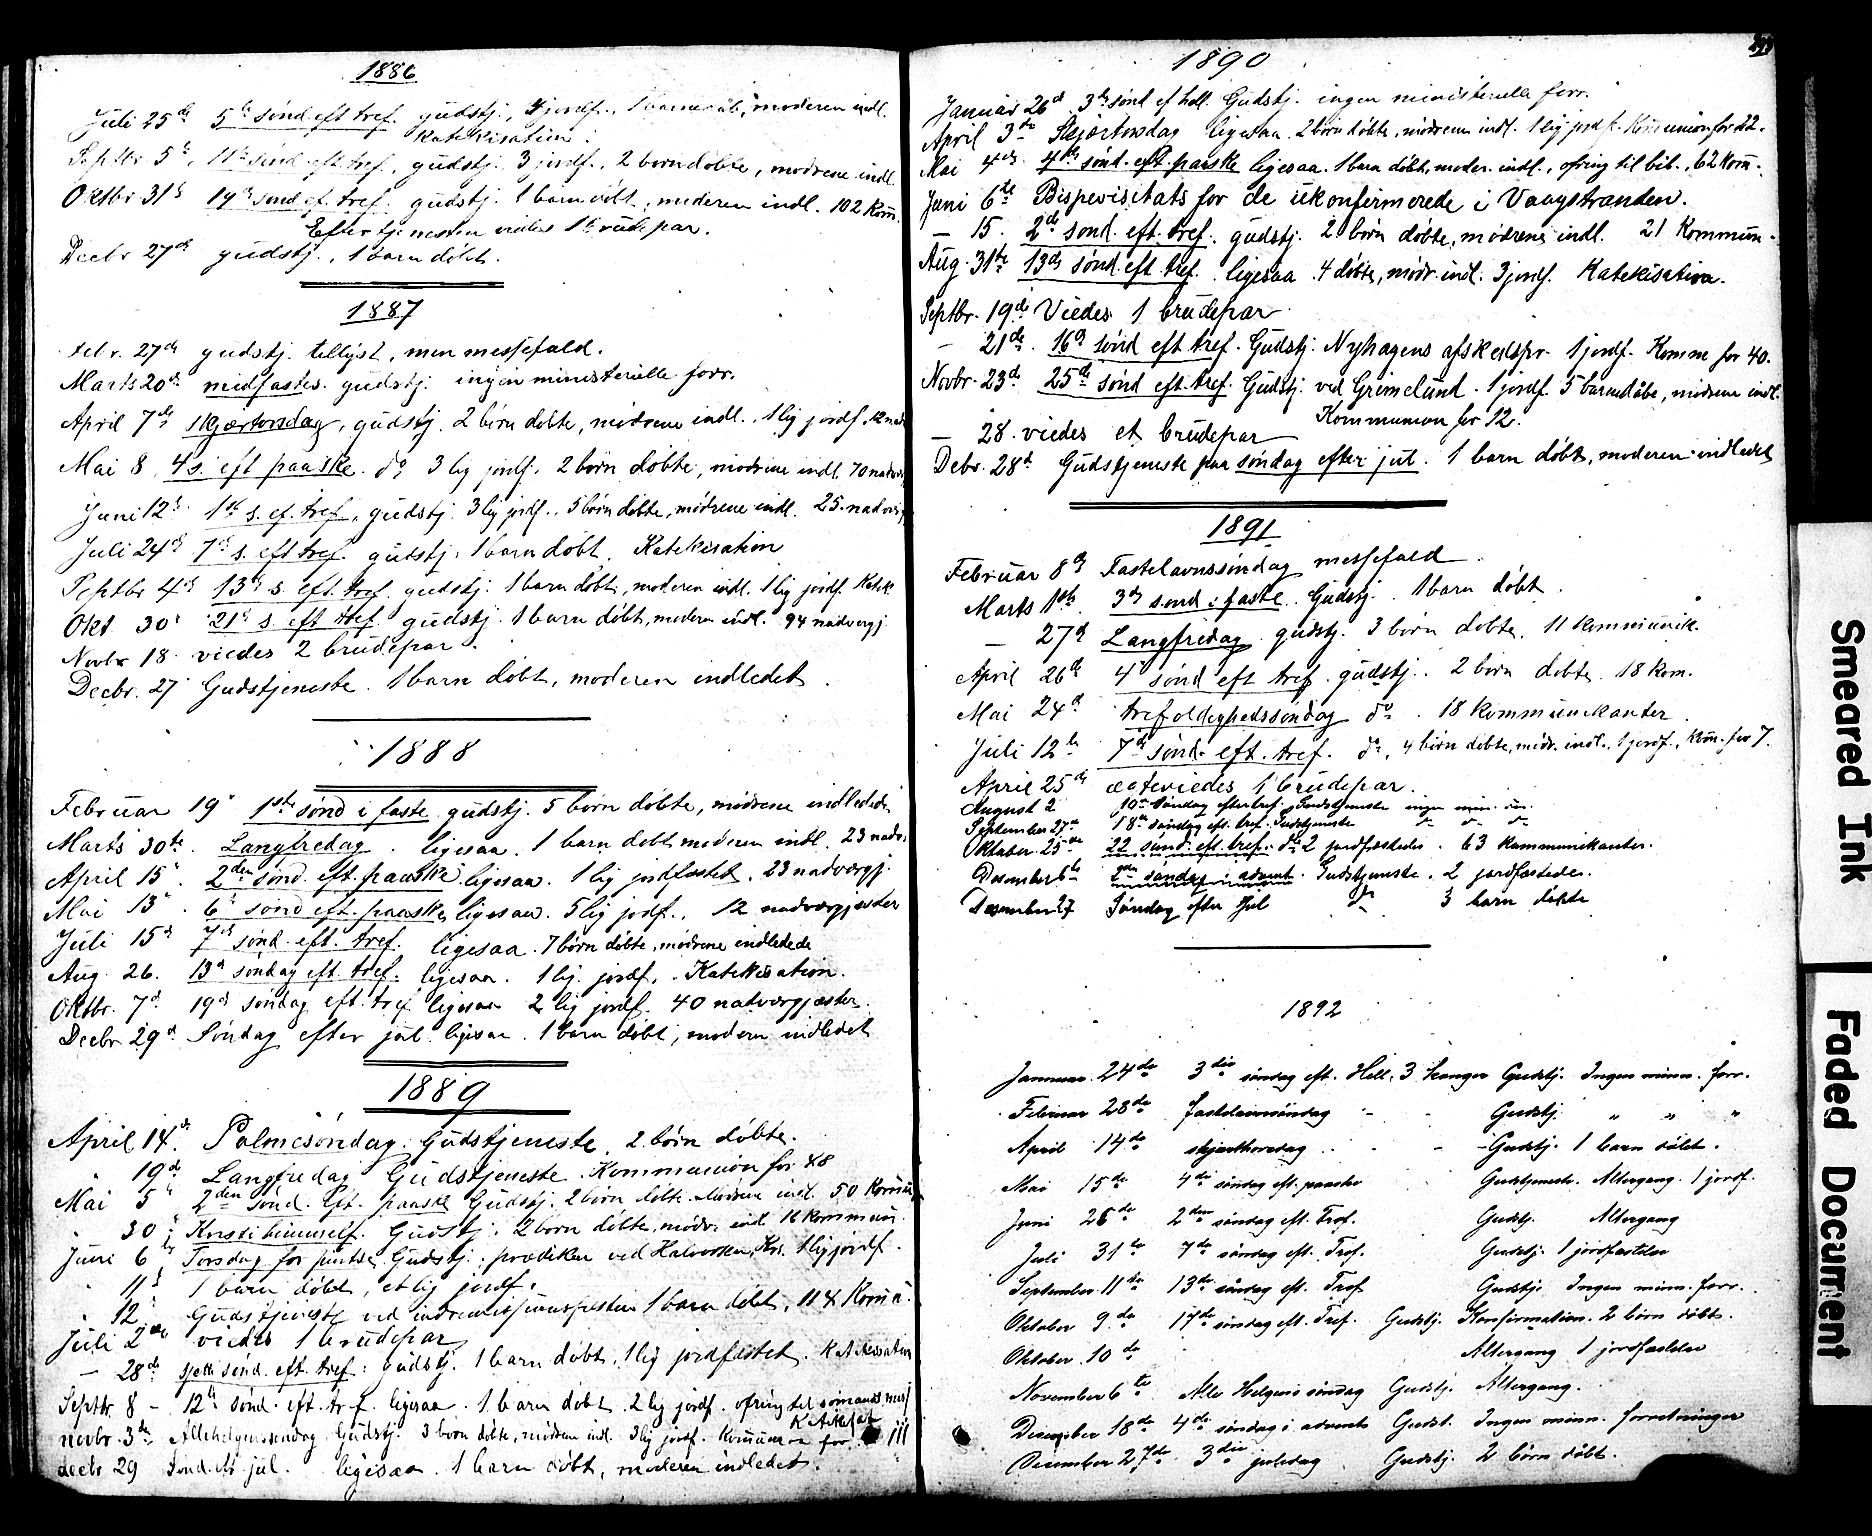 1886
Juli 25de 5te sønd eft tref. gudstj., 3 jordf., 1 barnedåb, moderen indl.
Katekisation.
Septbr 5te, 11te sønd eft. tref., gudstj. 3 jordf., 2 børn døbte, mødrene indl.
Oktbr 31te 19de sønd ef. tref. gudstj. 1 barn døbt, moderen indl. 102 kom.
Eftertjenesten viedes 1 brudepar.
Decbr 27de gudstj., 1 barn døbt.
1887
Febr. 27de gudstj. tillyst, men messefald.
Marts 20de midfastes. gudstj. ingen ministerielle forr.
April 7de skjærtorsdag, gudstj. 2 børn døbte, mødrene indl., 1 lig jordf.
Mai 8, 4 s. eft paaske. do 3 lig jordf. 2 børn døbte, mødrene indl. 70 nadver
Juni 12te 1ste s. ef. tref., gudstj. 3 lig jordf., 5 børn døbte, mødrene indl. 25. nadverg
Juli 24de 7de s. eft tref. gudstj. 1 barn døbt. Katekisation
Septbr 4de 13de s. eft. tref. gudstj. 1 barn døbt, moderen indl. 1 lig jordf. Katek.
Okt. 30te 21de s. eft tref. gudstj. 1 barn døbt, moderen indl. 94 nadvergj.
Novbr 18. viedes 2 brudepar.
Decbr. 27 Gudstjeneste. 1 barn døbt, moderen indledet.
1888
Februar 19de 1ste sønd i faste gudstj. 5 børn døbte, mødrene indledede
Marts 30te. Langfredag. ligesaa. 1 barn døbt moderen indl. 23 nadv.
April 15de. 2den sønd. eft. paaske. ligesaa. 1 lig jordfæstet. 23 nadvergj.
Mai 13de 6te sønd eft. paaske, ligesaa. 5 lig jordf., 12 nadvergjæster
Juli 15de 7de sønd. eft. tref. ligesaa. 7 børn døbte, mødrene indledede
Aug. 26. 13de søndag eft. tref. ligesaa. 1 lig. jordf. Katekisation.
Oktbr. 7de 19de søndag eft. tref ligesaa 2 lig jordf. 40 nadvergjæster.
Decbr 29de Søndag efter jul. ligesaa. 1 barn døbt, moderen indledet
1889
April 14de. Palmesøndag. Gudstjeneste. 2 børn døbte.
19de Langfredag Gudstjeneste. Kommunion for 48
Mai 5te 2den sønd. Eft. paaske Gudstj. 2 børn døbte. Mødrene indl. 50 Kommu
30te Kristi himmelf. Gudstj. 2 børn døbte, mødr. indl 16 kommun.
Juni 6te Torsdag før pintse Gudstj. prædiken ved Halvorsen, Krs. 1 lig jordf.
11te 1 barn døbt, et lig jordf.
12te Gudstjeneste ved indremissjonsfesten 1 barn døbt, 114 Komu.
Juli 2den viedes 1 brudepar
– 28de sjette sønd. eft. tref: Gudstj. 1 barn døbt, 1 lig jordfæstet. Katekisation
Septbr 8 – 12te sønd. eft. tref. ligesaa. 1 barn døbt. 2 lig jordf. ofring til sømandsmis
Katekisat
novbr. 3de Allehelgenssøndag Gudstj. 3 børn døbte, mødrene indl. 3 lig jordf. Kommunion for 111
decbr 29 Sønd. eft jul. ligesaa. 1 barn døbt, moderen indledet.
1890
Januar 26de 3de sønd ef hell. Gudstj. ingen ministerielle forr.
April 3de Skjærtorsdag ligesaa. 2 børn døbte, mødrene indl. 1 lig jordf. Kommunion for 22.
Mai 4de. 4de sønd. eft. paaske ligesaa. 1 barn døbt, moder. indl., ofring til bib., 62 kom.
Juni 6te Bispevisitats for de ukonfirmerede i Vaagstranden.
– 15. 2de sønd. eft. tref. gudstj. 2 børn døbte, mødrene indl. 21 Kommun.
Aug. 31te 13de sønd. eft. tref. ligesaa. 4 døbte, mødr. indl. 3 jordf. Katekisation.
Septbr. 19de Viedes 1 brudepar
– 21de. 16de sønd eft tref. Gudstj. Nyhagens afskedspr. 1 jordf. Komm for 40.
Novbr. 23de 25de sønd eft. tref. Gudstj. ved Grimelund. 1 jordf. 5 barnedåbe, mødrene indl.
Kommunion for 12.
– 28. viedes et brudepar
Debr. 28de Gudstjeneste paa søndag efter jul. 1 barn døbt, moderen indledet
1891
Februar 8de Fastelavnssøndag messefald.
Marts 1ste. 3de sønd i faste. Gudstj. 1 barn døbt.
– 27de Langfredag gudstj. 3 børn døbte. 11 kommunik.
April 26de 4de sønd eft tref. gudstj. 2 børn døbte. 18 kom.
Mai 24de trefoldighedssøndag do. 18 kommunikanter.
Juli 12te 7de sønd. eft. tref. do, 4 børn døbte, mødr. indl., 1 jordf., kom. for 7.
April 25de ægteviedes 1 brudepar.
August 2 10de Søndag efter tref. Gudstjeneste ingen min.
September 27de 18de søndag eft. tref. Gudstjeneste do do do
Oktober 25de 22 sønd. eft. tref. do 2 jordfæstedes. 63 kommunikanter.
Desember 6te 2den søndag i advent. Gudstjeneste. 2 jordfæstedes.
Desember 27 Søndag efter Jul do 3 barn døbte
1892
Januar. 24de 3die søndag eft. Hell. 3 konger Gudstj. Ingen minn. forr.
Februar 28de fastelavnsøndag - - Gudstj. " " "
April 14de skjærthorsdag - Gudstj. 1 barn døbt.
Mai 15de 4de søndag eft. paaske Gudstjeneste. Altergang. 1 jordf.
Juni 26de 2den søndag eft. Tref. Gudstj. Altergang
Juli 31te 7de søndag eft. Tref. Gudstj. 1 jordfæstelse
September 11te 13de søndag eft. Tref Gudstj. Ingen minn. forr.
Oktober 9de 17de søndag eft. Tref. Gudstj. Konfirmation. 2 børn døbt.
Oktober. 10de Altergang 1 jordfæstelse
November 6te Alle Helgens søndag Gudstj. Altergang.
Desember 18de 4de søndag i advent Gudst. Ingen minn. forretninger
Desember 27de 3die juledag Gudstj. 2 børn døbt.
Smeared Ink
Faded Document